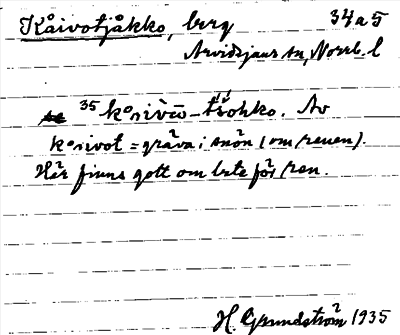 Kåivotjåkko, berg 34a5
Arvidsjaurs sn, Norrb. l
35 koi̯vō-tšåhko. Av
koi̯vot = gräva i snön (om renen).
Här finns gott om bete för ren.
H. Grundström 1935